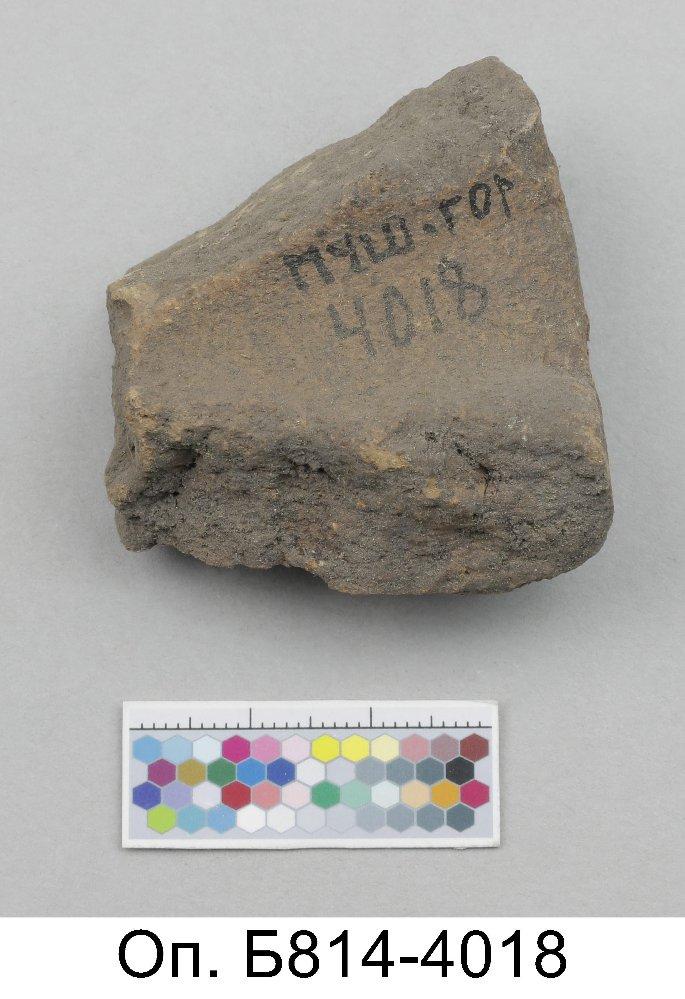 МЧШ.ГОР
4018
Оп. Б814-4018